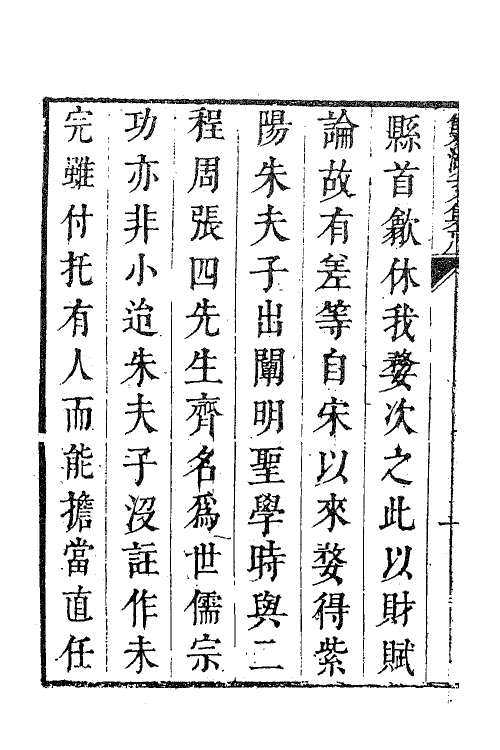 縣首歙休我婺次之此以財賦
論故有差等自宋以來婺得紫
陽朱夫子出闡明聖學時與二
程周張四先生齊名爲世儒宗
功亦非小迨朱夫子沒註作未
完雖付托有人而能擔當直任